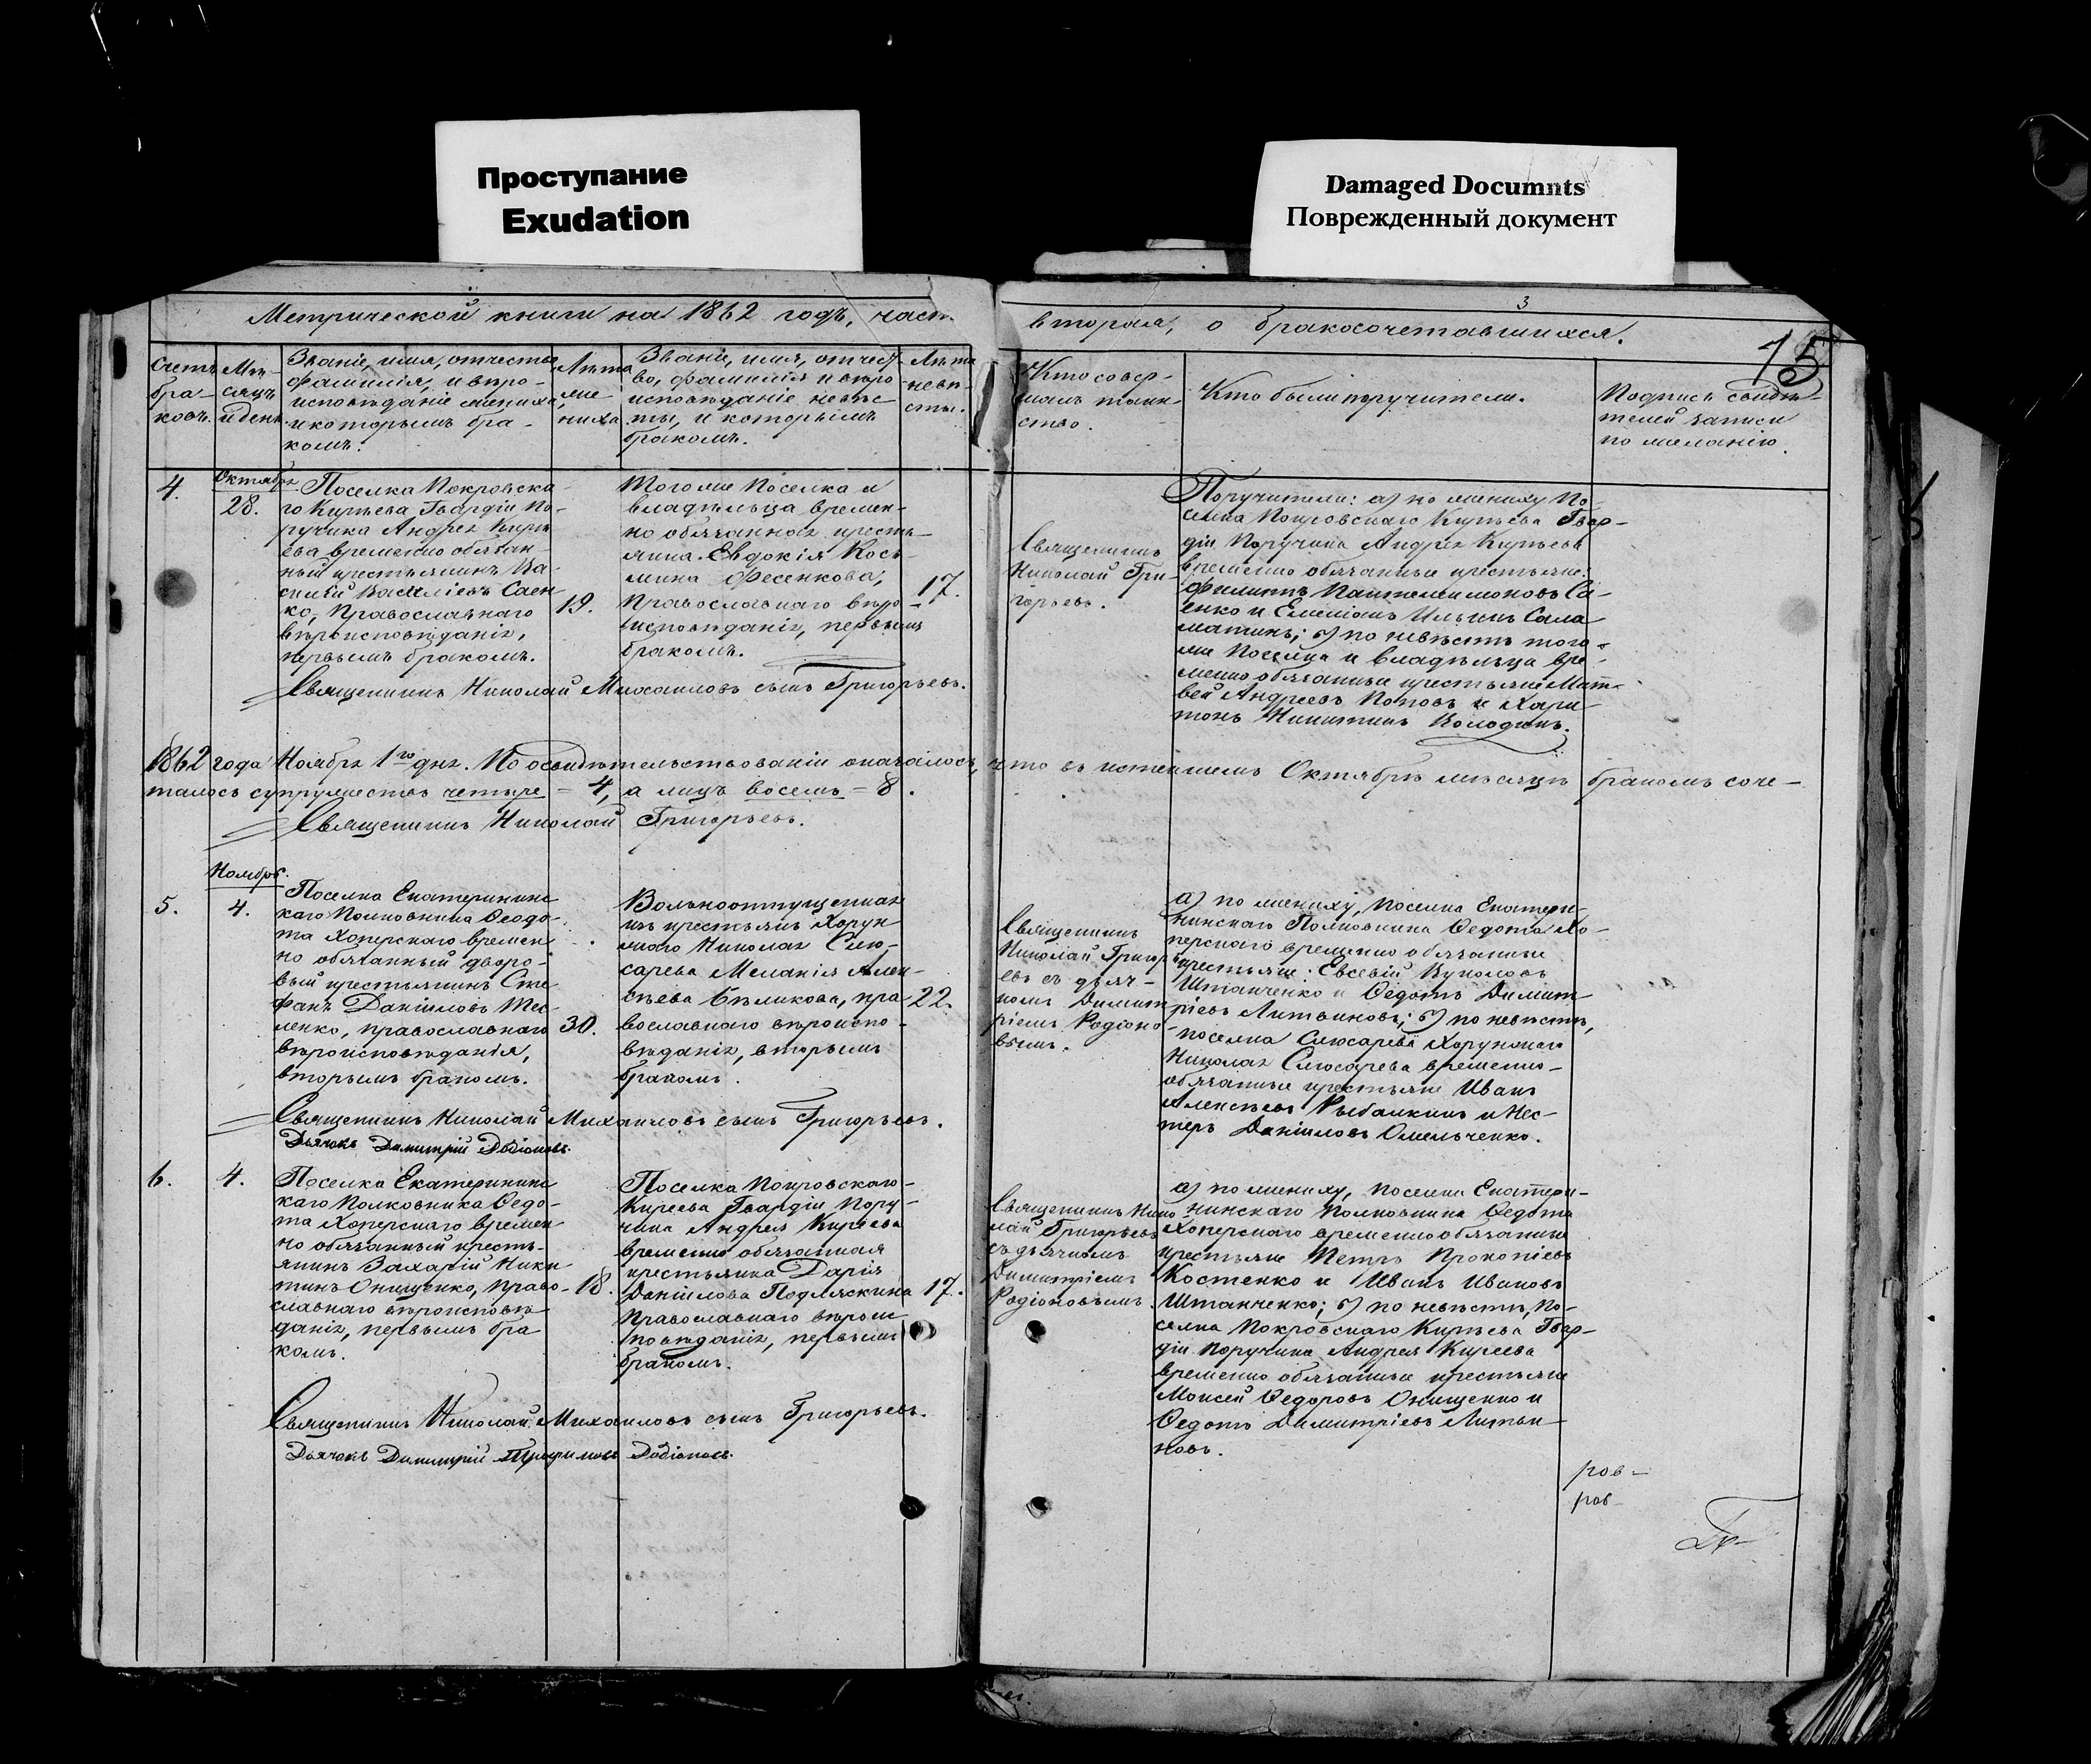 Проступание
Exudation
Damaged Documnts
Поврежденный документ
Метрической книги на 1862 годъ, част
3
вторая, о бракосочетавшихся.
15
Счетъ
бра-
ковъ.
Мѣ-
сяцъ
и день
Званіе, имя, отчество
фамилія, и вѣро-
исповѣданіе жениха,
и которымъ бра-
комъ.
Лѣта
же-
ниха
Званіе, имя, отчест-
во, фамилія и вѣро
исповѣданіе невѣс
ты, и которымъ
бракомъ.
Лѣта
невѣ-
сты.
Кто совер-
шалъ таин-
ство.
Кто были поручители.
Подпись свидѣ-
телей записи
по желанію.
4.
Октября
28.
Поселка Покровска-
го Кирѣева Гвардіи По-
ручика Андрея Кирѣ-
ева временно обязан-
ный крестьянинъ Ва-
силій Васильевъ Саен-
ко, Православнаго
вѣроисповѣданія,
первымъ бракомъ.
19.
Того же Поселка и
владѣльца времен-
но обязаннаго кресть-
янина Евдокія Кось-
мина Фесенкова,
Православнаго вѣро-
исповѣданія, первымъ
бракомъ.
17.
Священникъ
Николай Гри-
горьевъ.
Поручители: а) по жениху По-
селка Покровскаго Кирѣева Гвар-
діи Поручика Андрея Кирѣева
временно обязанные крестьяне:
Филиппъ Пантелеимоновъ Са-
енко и Емеліанъ Ильинъ Сала
матинъ; б) по невѣстѣ того-
же Поселка и владѣльца вре-
менно обязанные крестьяне Мат-
вей Андреевъ Поповъ и Хари-
тонъ Никитинъ Володинъ.
Священникъ Николай Михаиловъ сынъ Григорьевъ.
1862 года Ноября 1го дня. По освидѣтельствованіи оказалось, что въ истекшемъ Октябрѣ мѣсяцѣ бракомъ соче-
талось супружествъ четыре - 4, а лицъ восемь - 8.
Священникъ Николай Григорьевъ.
5.
Ноября.
4.
Поселка Екатеринин
скаго Полковника Ѳедо-
та Хоперскаго времен
но обязанный дворо-
вый крестьянинъ Сте
фанъ Даніиловъ Тес-
ленко, православнаго
вѣроисповѣданія,
вторымъ бракомъ.
30.
Вольноотпущенная
изъ крестьянъ Хорун
жаго Николая Слю-
сарева Меланія Алек-
сѣева Бѣликова, пра
вославнаго вѣроиспо-
вѣданія, вторымъ
бракомъ.
22.
Священникъ
Николай Григорь
евъ съ дьяч-
комъ Димит
ріемъ Родіоно
вымъ.
а) по жениху, поселка Екатери-
нинскаго Полковника Ѳедота Хо-
перскаго временно обязанные
крестьяне: Евсевій
Штанченко и Ѳедотъ Димит
ріевъ Литвиновъ; б) по невѣстѣ,
поселка Слюсарева Хорунжаго
Николая Слюсарева временно-
обязанные крестьяне Иванъ
Алексѣевъ Рыбалкинъ и Нес-
теръ Даніиловъ Омельченко.
Священникъ Николай Михаиловъ сынъ Григорьевъ.
Дьячокъ Димитрій Родіоновъ.
6.
4.
Поселка Екатеринин
скаго Полковника Ѳедо-
та Хоперскаго времен
но обязанный кресть-
янинъ Захарій Ники
тинъ Онищенко, право-
славнаго вѣроисповѣ-
данія, первымъ бра
комъ.
18.
Поселка Покровскаго-
Киреева Гвардіи Пору-
чика Андрея Киреева
временно обязанная
крестьянка Дарія
Даніилова Подляскина
Православнаго вѣроис
повѣданія, первымъ
бракомъ.
17.
Священникъ Нико
лай Григорьевъ
съ дьячкомъ
Димитріемъ
Родіоновымъ.
а) по жениху, поселка Екатери-
нинскаго Полковника Ѳедота
Хоперскаго временно обязанные
крестьяне Петръ Прокопіевъ
Костенко и Иванъ Ивановъ
Штанченко; б) по невѣстѣ, По-
селка Покровскаго Кирѣева Гвар-
діи Поручика Андрея Киреева
временно обязанные крестьяне
Моисей Ѳедоровъ Онищенко и
Ѳедотъ Димитріевъ Литви-
новъ.
Священникъ Николай Михаиловъ сынъ Григорьевъ.
Дьячокъ Димитрій Трофимовъ Родіоновъ.
ров-
ров-